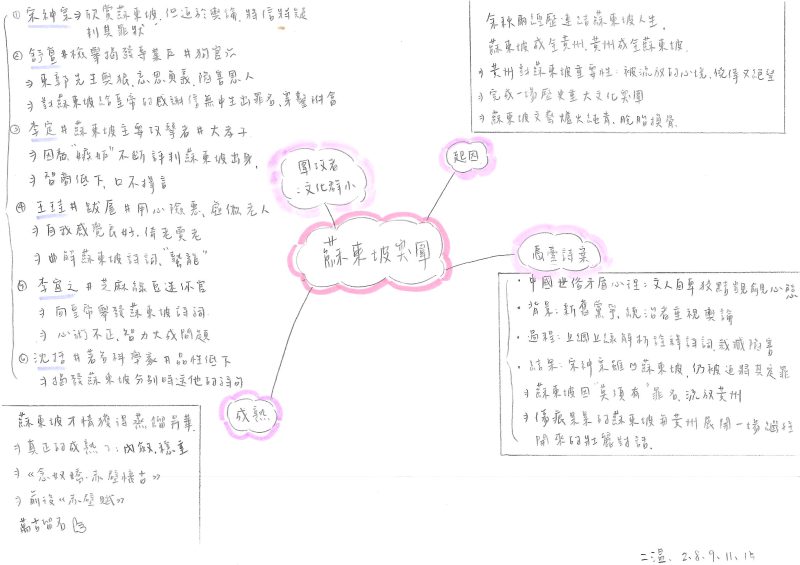 ① 宋神宗⇒欣賞蘇東坡,但迫於輿論,將信將疑
判其罪狀
② 舒亶#檢舉揭發專業戶#狗官
⇒東郭先生與狼,忘恩負義,陷害恩人
⇒對蘇東坡給皇帝的感謝信無中生出罪名,穿鑿附會
③ 李定#蘇東坡主要攻擊者#大孝子
⇒不斷評判蘇東坡出身,
⇒智商低下,口不擇言
④ 王珪#跋扈#用心險惡,
⇒自我感覺良好,倚老賣老
⇒曲解蘇東坡詩詞,"蟄龍"
⑤ 李宜之#芝麻綠豆迷你官
⇒向皇帝舉發蘇東坡詩詞
⇒心術不正,智力大成問題
⑥ 沈括#著名科學家#品性低下
⇒揭發蘇東坡分別時送他的詩句
余秋雨
蘇東坡成全黃州,黃州成全蘇東坡.
⇒黃州對蘇東坡重要性:被流放的心境,僥倖又絕望
⇒完成一場歷史重大文化突圍
⇒蘇東坡文學爐火純青,脫胎換骨
起因
圍攻者
:文化群小
蘇東坡突圍
烏臺詩案
成熟
•中國世俗矛盾心理:文人自卑
•背景:新舊黨爭,統治者重視輿論
•過程:上綱上線解析詮釋詩詞,栽贓陷害
•結果:宋神宗雖
⇒蘇東坡因"莫須有"罪名,流放黃州
⇒傷痕累累的蘇東坡與黃州展開一場繼往
開來的壯麗對話.
蘇東坡才情獲得蒸餾昇華
⇒真正的成熟了:內斂,穩重
⇒《念奴嬌·赤壁懷古》
⇒前後《赤壁賦》
萬古留名
二溫、2.8.9.11.15